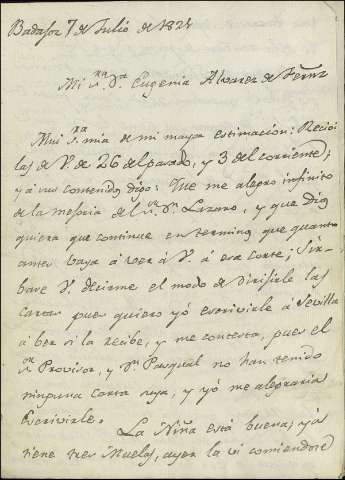 Badajoz 7 de Julio de 1824
Mi S.ra D.a Eugenia Alvarez de
Mui S.ra mia de mi mayor estimacion: Recivi
las de V. de 26 del pasado, y 3 del corriente;
y á sus contenidos digo: Que me alegro infinito
de la mejoria de el S.or D.n Lazaro, y que Dios
quiera que continue en terminos que quanto
antes baya á ver á V. á esa Corte; Sir-
base V. decirme el modo de dirijirle las
cartas pues quiero yó escrivirle á Sevilla
á ber si la recibe, y me contesta, pues el
S.or Provisor, y D.n Pasqual no han tenido
ninguna carta suya, y yó me alegraria
escrivirle.
La Niña está buena; yá
tiene tres Muelas, ayer la vi comiendose